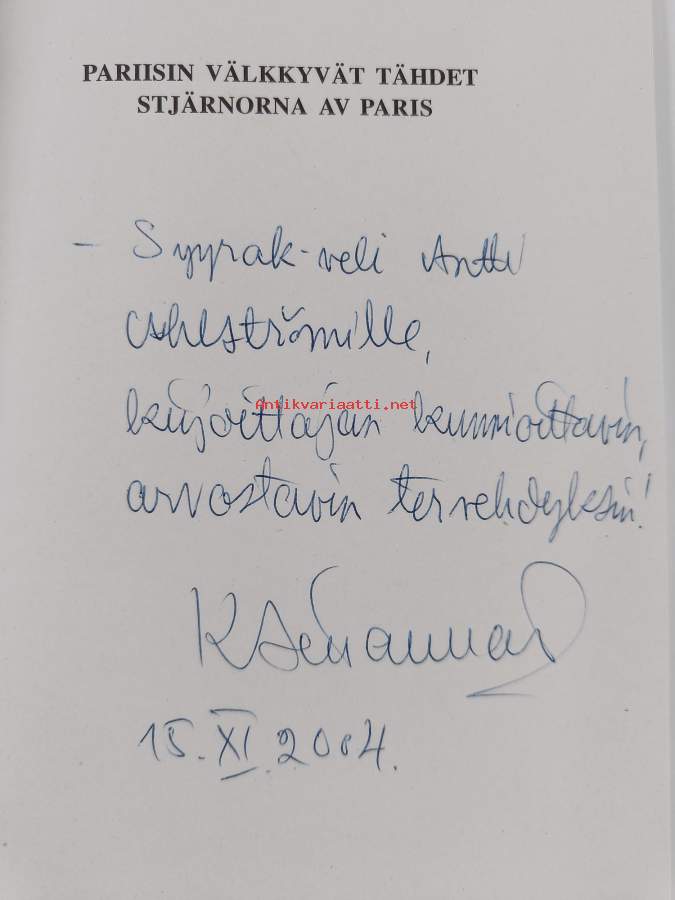 PARIISIN VÄLKKYVÄT TÄHDET
STJÄRNORNA AV PARIS
– Syyrak-veli Antti
Ahlströmille,
kirjoittajan kunnioittavin,
Antikvariaatti.net
arvostavin tervehdyksin!
15. XI. 2004.